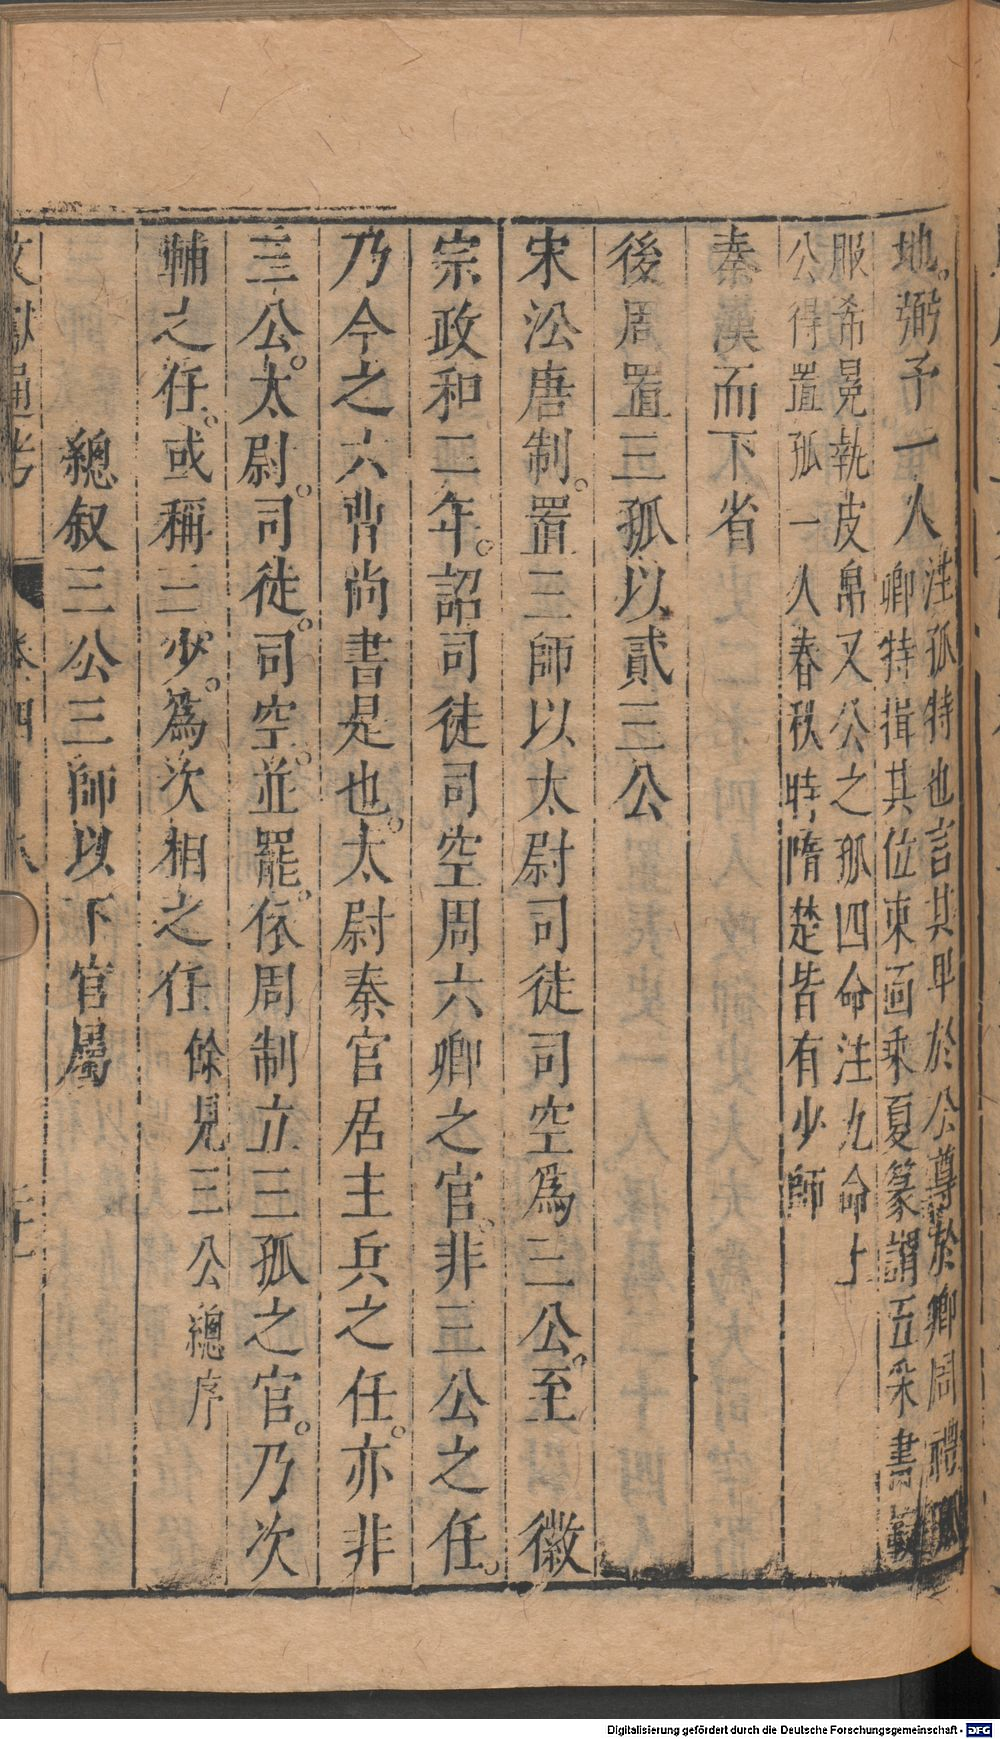 地。弼予一人
注孤特也言其卑於公尊於卿周禮孤
卿特揖其位東面乘夏篆謂五采畫轂
服希冕執皮帛又公之孤四命注九命上
公得置孤一人春秋時隋楚皆有少師
秦漢而下省
後周置三孤以貳三公
宋沿唐制。置三師以太尉司徒司空爲三公。至 徽
宗政和二年。詔司徒司空周六卿之官。非三公之任。
乃今之六曹尚書是也。太尉秦官居主兵之任。亦非
三公。太尉。司徒。司空。並罷。依周制立三孤之官。乃次
輔之任。或稱三少。爲次相之任 餘見三公總序
總叙三公三師以下官屬
文獻通考 卷四十八 二十一
Digitalisierung gefördert durch die Deutsche Forschungsgemeinschaft - DFG